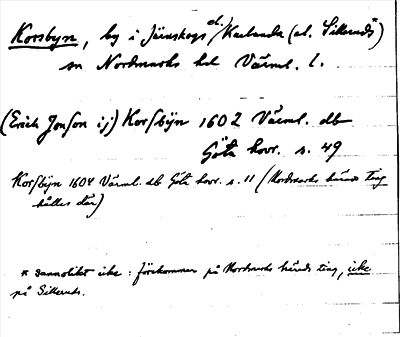 Korsbyn, by i Järnskogs el. Karlanda (el. Silleruds*)
sn Nordmarks hd Värml. l.
(Erich Jonson i;j) Korsbÿn 1602 Värml. db
Göta hovr. s. 49
Korsbÿn 1604 Värml. db Göta hovr. s. 11 (Nordmarks härads ting
hålles där)
* sannolikt icke: förekommer på Nordmarks härads ting, icke
på Silleruds.